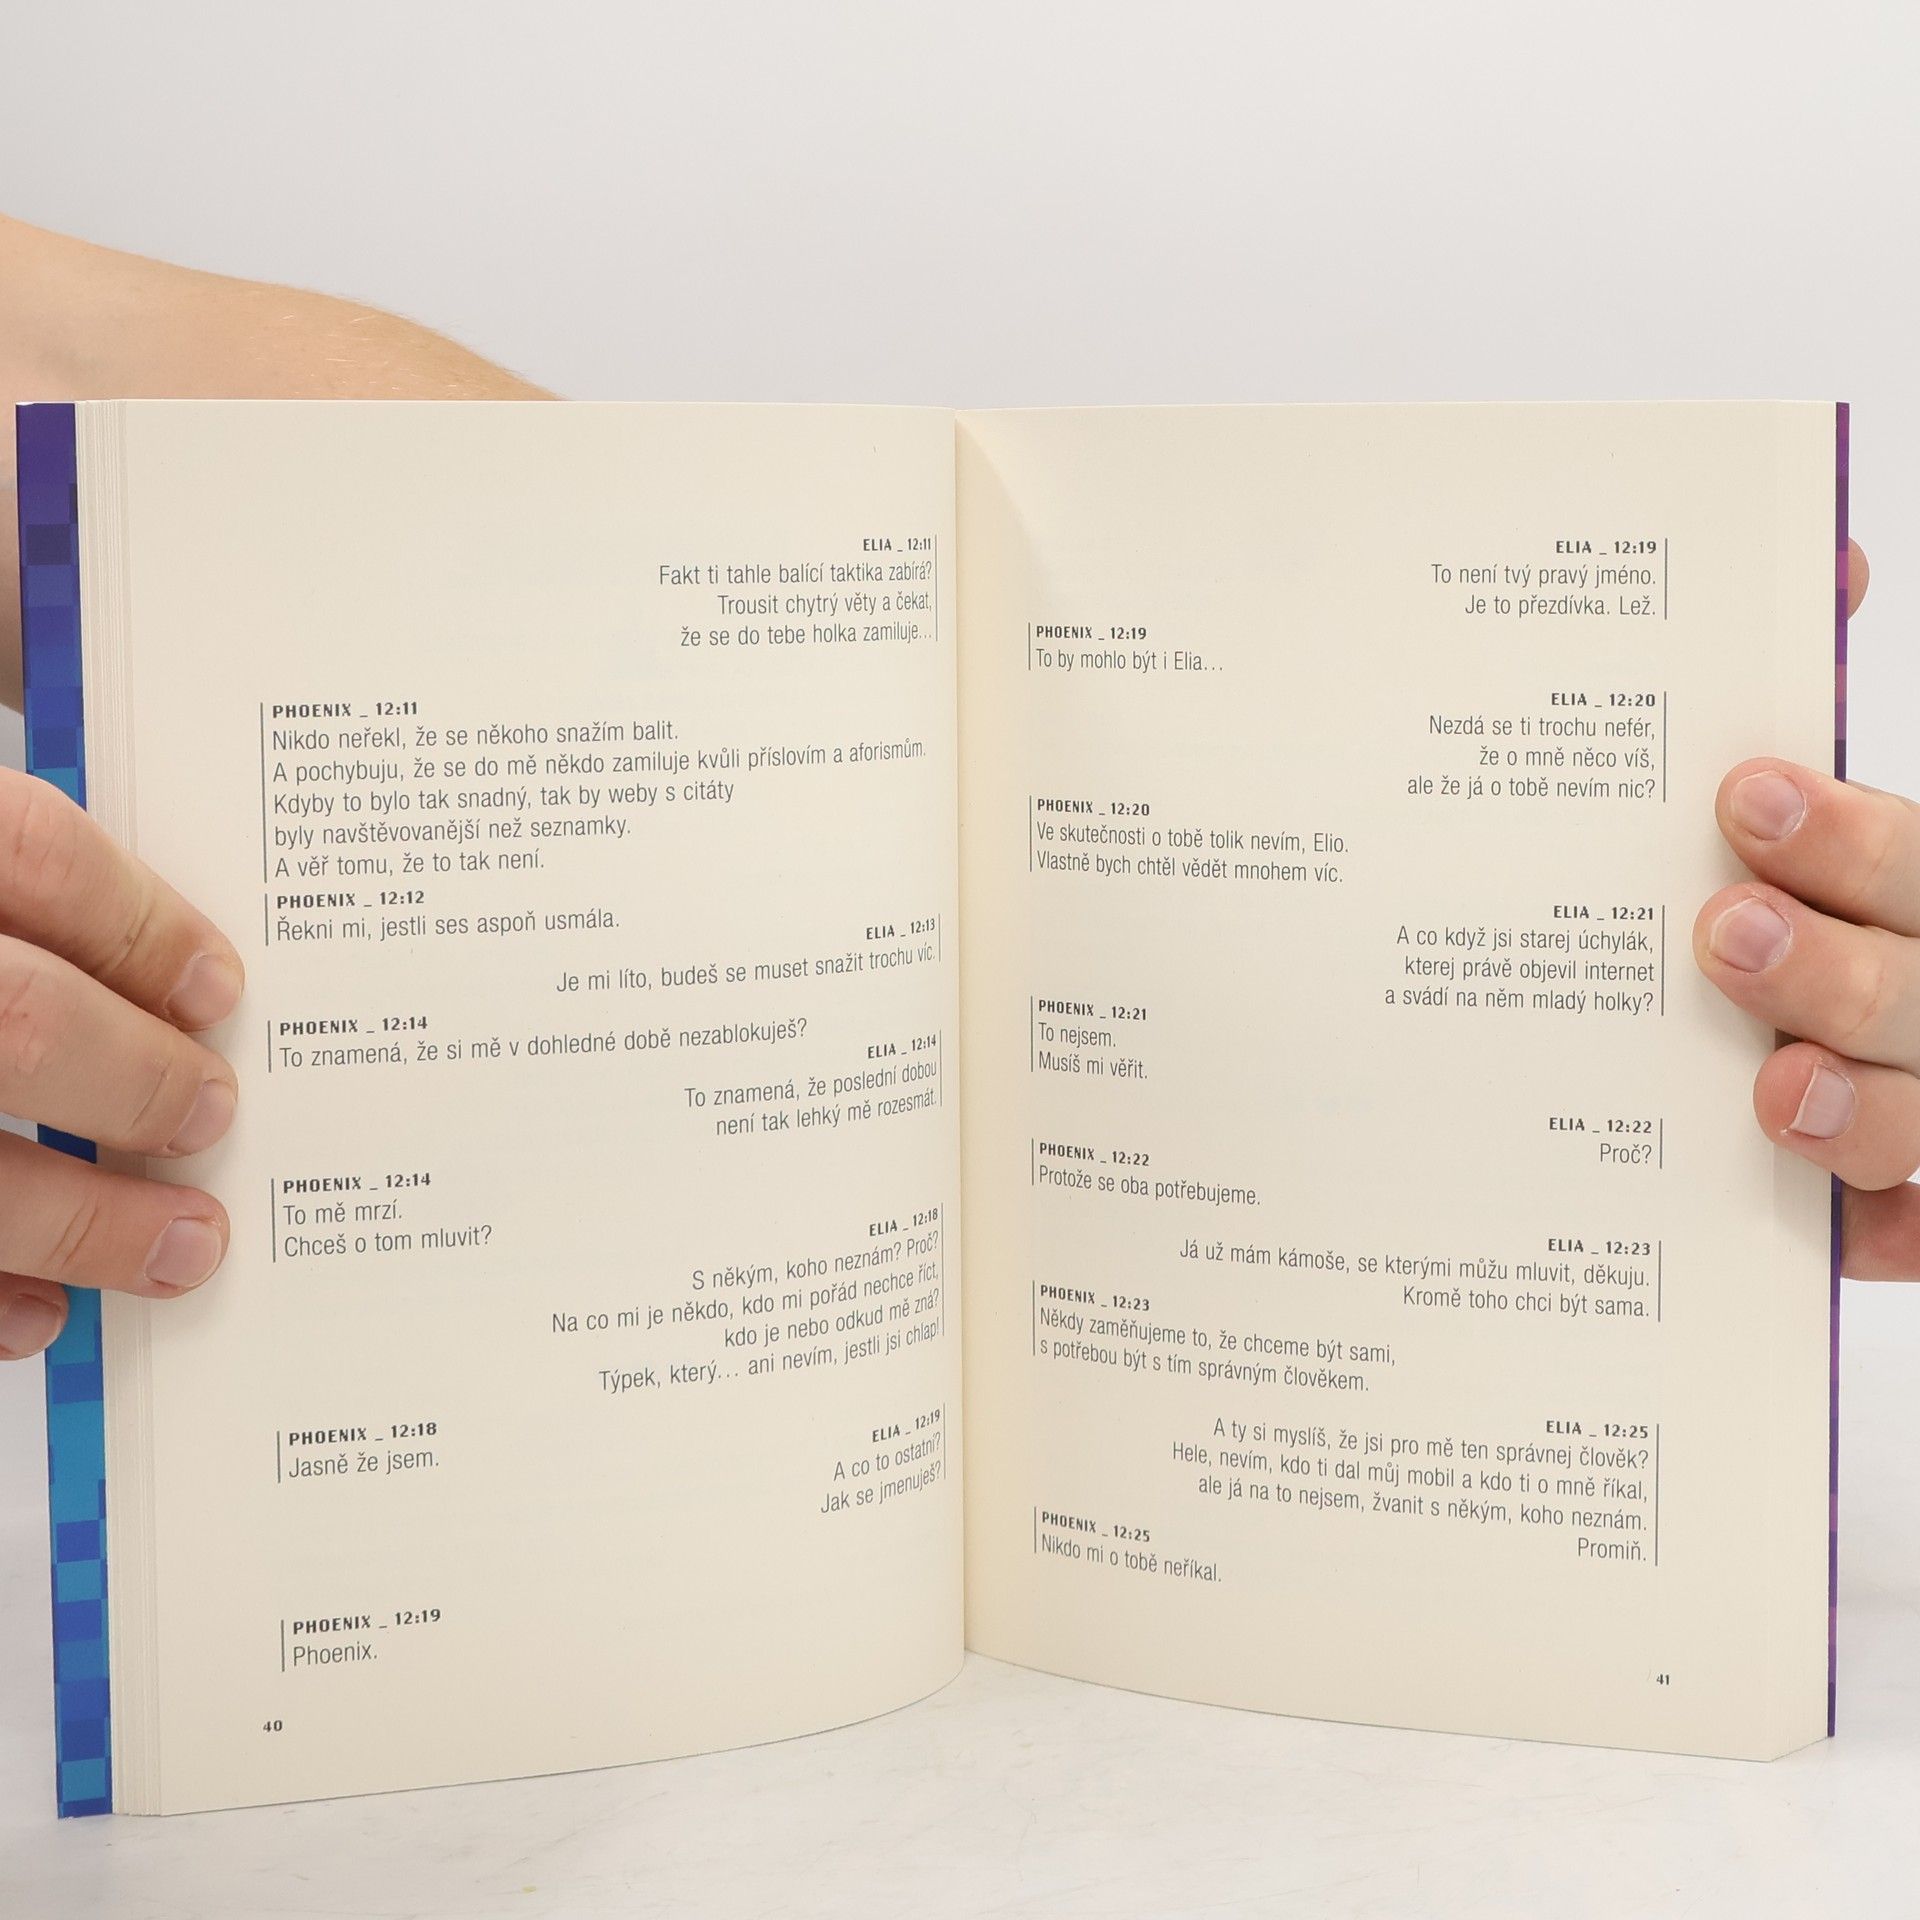 ELIA _ 12:11
Fakt ti tahle balící taktika zabírá?
Trousit chytrý věty a čekat,
že se do tebe holka zamiluje...
PHOENIX _ 12:11
Nikdo neřekl, že se někoho snažím balit.
A pochybuju, že se do mě někdo zamiluje kvůli příslovím a aforismům.
Kdyby to bylo tak snadný, tak by weby s citáty
byly navštěvovanější než seznamky.
A věř tomu, že to tak není.
PHOENIX _ 12:12
Řekni mi, jestli ses aspoň usmála.
ELIA _ 12:13
Je mi líto, budeš se muset snažit trochu víc.
PHOENIX _ 12:14
To znamená, že si mě v dohledné době nezablokuješ?
ELIA _ 12:14
To znamená, že poslední dobou
není tak lehký mě rozesmát.
PHOENIX _ 12:14
To mě mrzí.
Chceš o tom mluvit?
ELIA _ 12:18
S někým, koho neznám? Proč?
Na co mi je někdo, kdo mi pořád nechce říct,
kdo je nebo odkud mě zná?
Týpek, který... ani nevím, jestli jsi chlap!
PHOENIX _ 12:18
Jasně že jsem.
ELIA _ 12:19
A co to ostatní?
Jak se jmenuješ?
PHOENIX _ 12:19
Phoenix.
40
ELIA _ 12:19
To není tvý pravý jméno.
Je to přezdívka. Lež.
PHOENIX _ 12:19
To by mohlo být i Elia...
ELIA _ 12:20
Nezdá se ti trochu nefér,
že o mně něco víš,
ale že já o tobě nevím nic?
PHOENIX _ 12:20
Ve skutečnosti o tobě tolik nevím, Elio.
Vlastně bych chtěl vědět mnohem víc.
ELIA _ 12:21
A co když jsi starej úchylák,
kterej právě objevil internet
a svádí na něm mladý holky?
PHOENIX _ 12:21
To nejsem.
Musíš mi věřit.
ELIA _ 12:22
Proč?
PHOENIX _ 12:22
Protože se oba potřebujeme.
ELIA _ 12:23
Já už mám kámoše, se kterými můžu mluvit, děkuju.
Kromě toho chci být sama.
PHOENIX _ 12:23
Někdy zaměňujeme to, že chceme být sami,
s potřebou být s tím správným člověkem.
ELIA _ 12:25
A ty si myslíš, že jsi pro mě ten správnej člověk?
Hele, nevím, kdo ti dal můj mobil a kdo ti o mně říkal,
ale já na to nejsem, žvanit s někým, koho neznám.
Promiň.
PHOENIX _ 12:25
Nikdo mi o tobě neříkal.
41